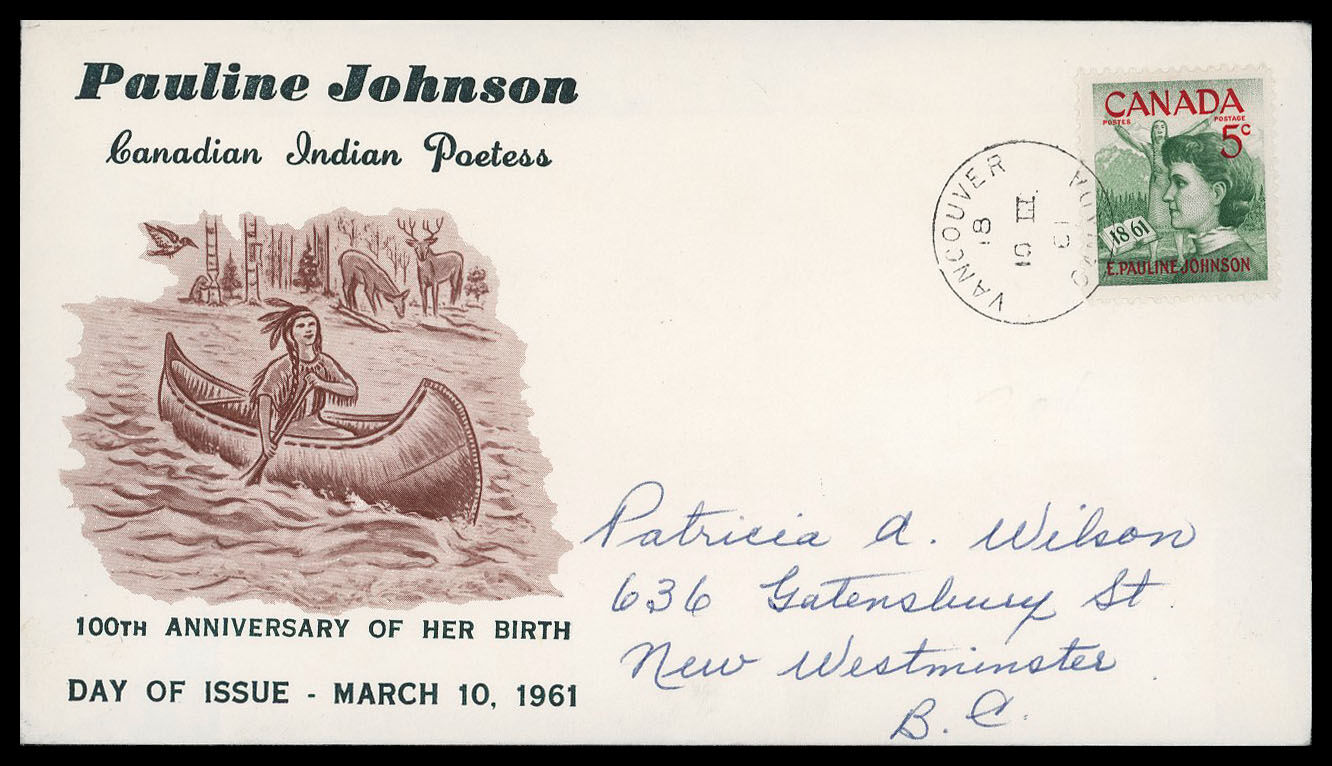 Pauline Johnson
Canadian Indian Poetess
CANADA
POSTES POSTAGE
5¢
1861
E. PAULINE JOHNSON
VANCOUVER
18 III 61
13
Patricia A. Wilson
636 Gatensbury St.
New Westminster
B. C.
100TH ANNIVERSARY OF HER BIRTH
DAY OF ISSUE - MARCH 10, 1961